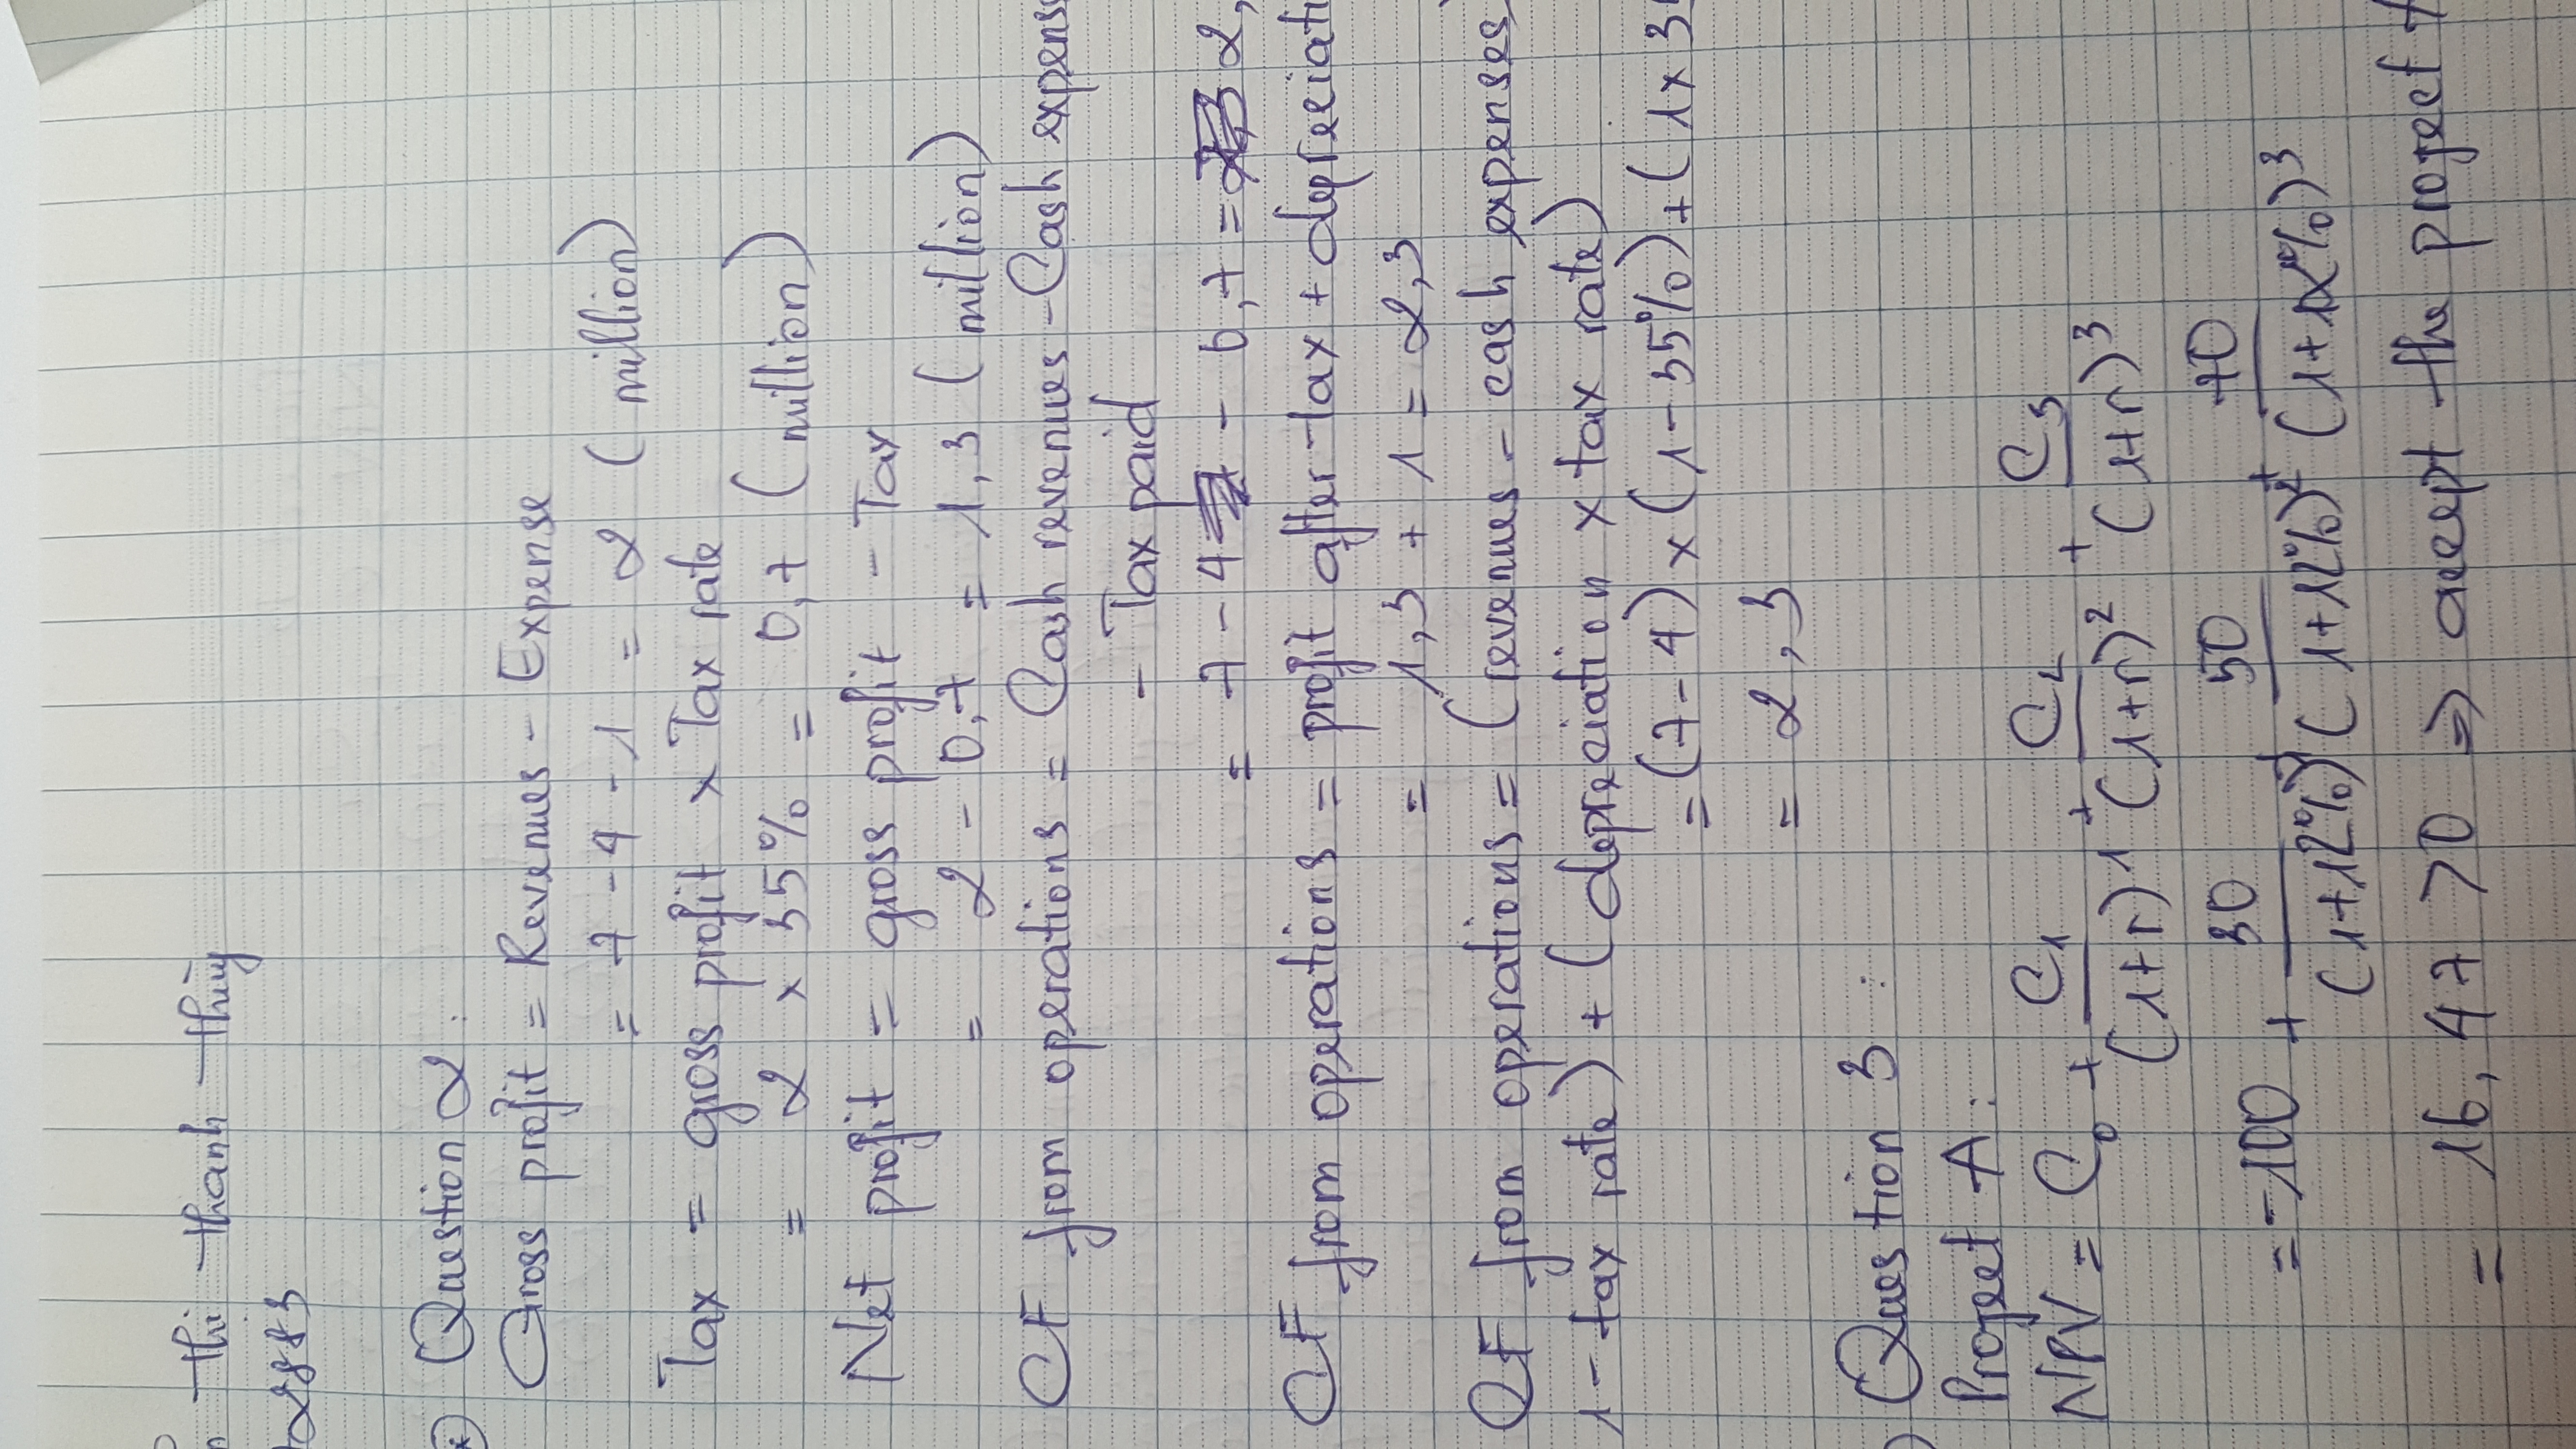 thi thanh thùy
Question 2:
Gross profit = Revenues - Expense
= 7 - 4 - 1 = 2 (million)
Tax = gross profit x Tax rate
= 2 x 35% = 0,7 (million)
Net profit = gross profit - Tax
= 2 - 0,7 = 1,3 (million)
CF from operations = Cash revenues - Cash
- Tax paid
= 7 - 4 - 0,7 = 2,
CF from operations = profit after-tax +
= 1,3 + 1 = 2,3
CF from operations = (revenues - cash expenses)
1 - tax rate) + (depreciation x tax rate)
= (7 - 4) x (1 - 35%) + (1 x
= 2,3
Question 3:
Project A:
NPV = C0 + C1/(1+r)^1 + C2/(1+r)^2 + C3/(1+r)^3
= -100 + 30/(1+12%)^1 + 50/(1+12%)^2 + 70/(1+12%)^3
= 16,47 > 0 => accept the project